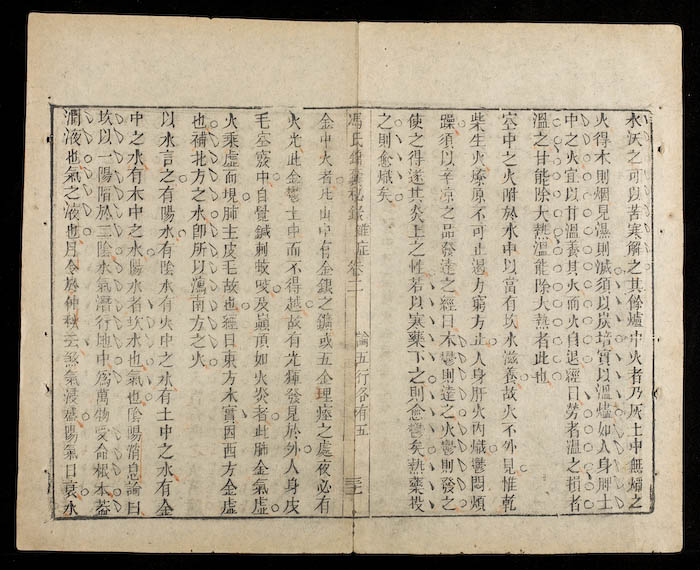 水沃之可以苦寒解之其餘爐中火者乃灰土中無燄之
火得木則烟見濕則滅須以炭培實以溫燼如人身脾土
中之火宜以甘溫養其火而火自退經曰勞者溫之損者
溫之甘能除大熱溫能除大熱者此也
空中之火附於水中以當有坎水滋養故火不外見惟乾
柴生火燎原不可止遏力窮方止人身肝火內熾鬱悶煩
躁須以辛涼之品發達之經曰木鬱則達之火鬱則發之
使之得遂其炎上之性若以寒藥下之則愈鬱矣熱藥投
之則愈熾矣
馮氏錦囊秘錄雜症卷二 論五行各有五
金中火者凡山中有金銀之鑛或五金埋瘞之處夜必有
火光此金鬱土中而不得越故有光輝發見於外人身皮
毛空竅中自覺鍼刺蚊咬及巔頂如火炎者此肺金氣虛
火乘虛而現肺主皮毛故也經曰東方木實因西方金虛
也補北方之水即所以瀉南方之火
以水言之有陽水有陰水有火中之水有土中之水有金
中之水有木中之水陽水者坎水也氣也陰陽消息論曰
坎以一陽陷於二陰水氣潛行地中為萬物受命根本蓋
潤液也氣之液也月令於仲秋云煞氣浸盛陽氣日衰水